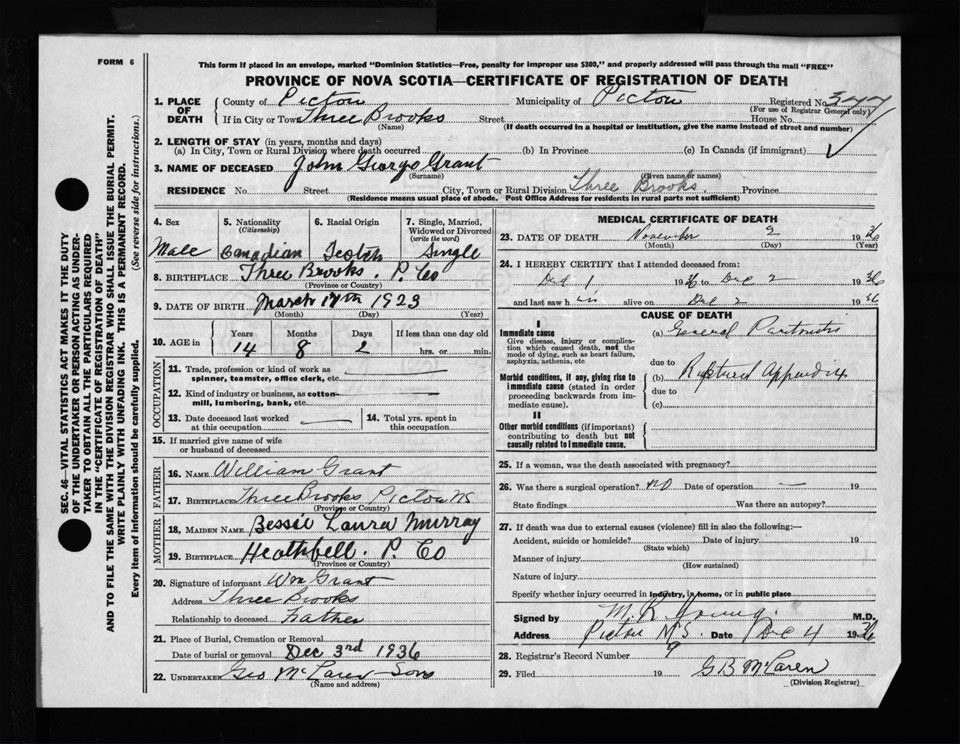 FORM 6
This form if placed in an envelope, marked "Dominion Statistics—Free, penalty for improper use $300," and properly addressed will pass through the mail "FREE"
PROVINCE OF NOVA SCOTIA—CERTIFICATE OF REGISTRATION OF DEATH
1. PLACE OF DEATH
County of Pictou Municipality of Pictou Registered No.
(For use of Registrar General only)
If in City or Town Three Brooks Street House No.
(Name) (If death occurred in a hospital or institution, give the name instead of street and number)
2. LENGTH OF STAY (in years, months and days)
(a) In City, Town or Rural Division where death occurred (b) In Province (c) In Canada (if immigrant)
3. NAME OF DECEASED John George Grant
(Surname) (Given name or names)
RESIDENCE No. Street City, Town or Rural Division Three Brooks. Province
(Residence means usual place of abode. Post Office Address for residents in rural parts not sufficient)
4. Sex Male
5. Nationality (Citizenship) Canadian
6. Racial Origin Scotch
7. Single, Married, Widowed or Divorced (write the word) Single
8. BIRTHPLACE Three Brooks. P. Co
(Province or Country)
9. DATE OF BIRTH March 1923
(Month) (Day) (Year)
10. AGE in Years Months Days If less than one day old
14 8 2 hrs. or min.
OCCUPATION
11. Trade, profession or kind of work as spinner, teamster, office clerk, etc.
12. Kind of industry or business, as cotton-mill, lumbering, bank, etc.
13. Date deceased last worked at this occupation
14. Total yrs. spent in this occupation
15. If married give name of wife or husband of deceased
FATHER
16. NAME William Grant
17. BIRTHPLACE Three Brooks Pictou NS
(Province or Country)
MOTHER
18. MAIDEN NAME Bessie Laura Murray
19. BIRTHPLACE Heathbell. P. Co
(Province or Country)
20. Signature of informant Wm Grant
Address Three Brooks
Relationship to deceased Father
21. Place of Burial, Cremation or Removal
Date of burial or removal Dec 3rd 1936
22. UNDERTAKER Geo McLaren Sons
(Name and address)
MEDICAL CERTIFICATE OF DEATH
23. DATE OF DEATH November 1936
(Month) (Day) (Year)
24. I HEREBY CERTIFY that I attended deceased from:
Dec 1 1936 to Dec 2 1936
and last saw him alive on Dec 2 1936
CAUSE OF DEATH
I
Immediate cause
Give disease, injury or complication which caused death, not the mode of dying, such as heart failure, asphyxia, asthenia, etc
(a) General Peritonitis
due to
Morbid conditions, if any, giving rise to immediate cause (stated in order proceeding backwards from immediate cause).
(b) Ruptured Appendix
due to
(c)
II
Other morbid conditions (if important) contributing to death but not causally related to immediate cause.
25. If a woman, was the death associated with pregnancy?
26. Was there a surgical operation? NO Date of operation — 19
State findings Was there an autopsy?
27. If death was due to external causes (violence) fill in also the following:—
Accident, suicide or homicide? Date of injury 19
(State which)
Manner of injury
(How sustained)
Nature of injury
Specify whether injury occurred in industry, in home, or in public place
Signed by M. R. Young. M.D.
Address Pictou N.S. Date Dec 4 1936
28. Registrar's Record Number 9
29. Filed 19 G B McLaren
(Division Registrar)
SEC. 46—VITAL STATISTICS ACT MAKES IT THE DUTY
OF THE UNDERTAKER OR PERSON ACTING AS UNDER-
TAKER TO OBTAIN ALL THE PARTICULARS REQUIRED
IN THE "CERTIFICATE OF REGISTRATION OF DEATH"
AND TO FILE THE SAME WITH THE DIVISION REGISTRAR WHO SHALL ISSUE THE BURIAL PERMIT.
WRITE PLAINLY WITH UNFADING INK. THIS IS A PERMANENT RECORD.
Every item of information should be carefully supplied. (See reverse side for instructions.)